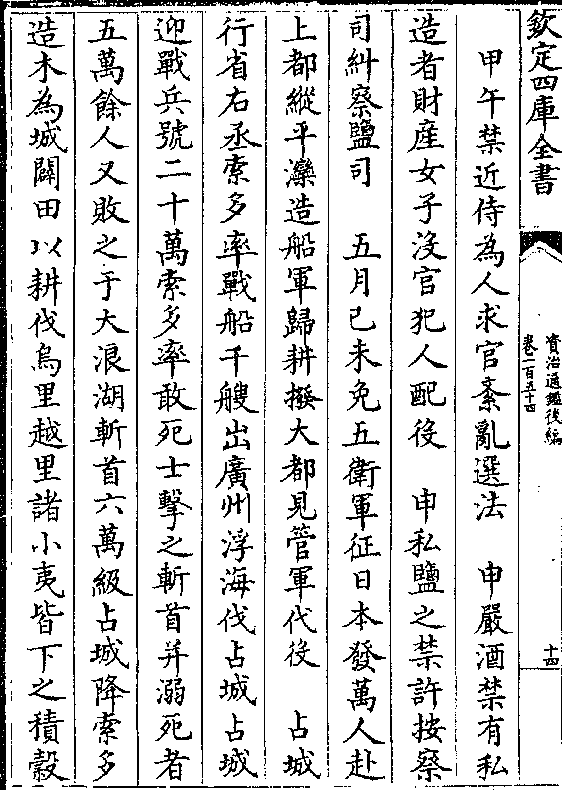 欽定四庫全書
資治通鑑後編
卷一百五十四
十四
甲午禁近侍為人求官紊亂選法　申嚴酒禁有私
造者財産女子沒官犯人配役　申私鹽之禁許按察
司糾察鹽司　五月己未免五衛軍征日本發萬人赴
上都縱平灤造船軍歸耕撥大都見管軍代役　占城
行省右丞索多率戰船千艘出廣州浮海伐占城占城
迎戰兵號二十萬索多率敢死士擊之斬首并溺死者
五萬餘人又敗之于大浪湖斬首六萬級占城降索多
造木為城闢田以耕伐烏里越里諸小夷皆下之積穀